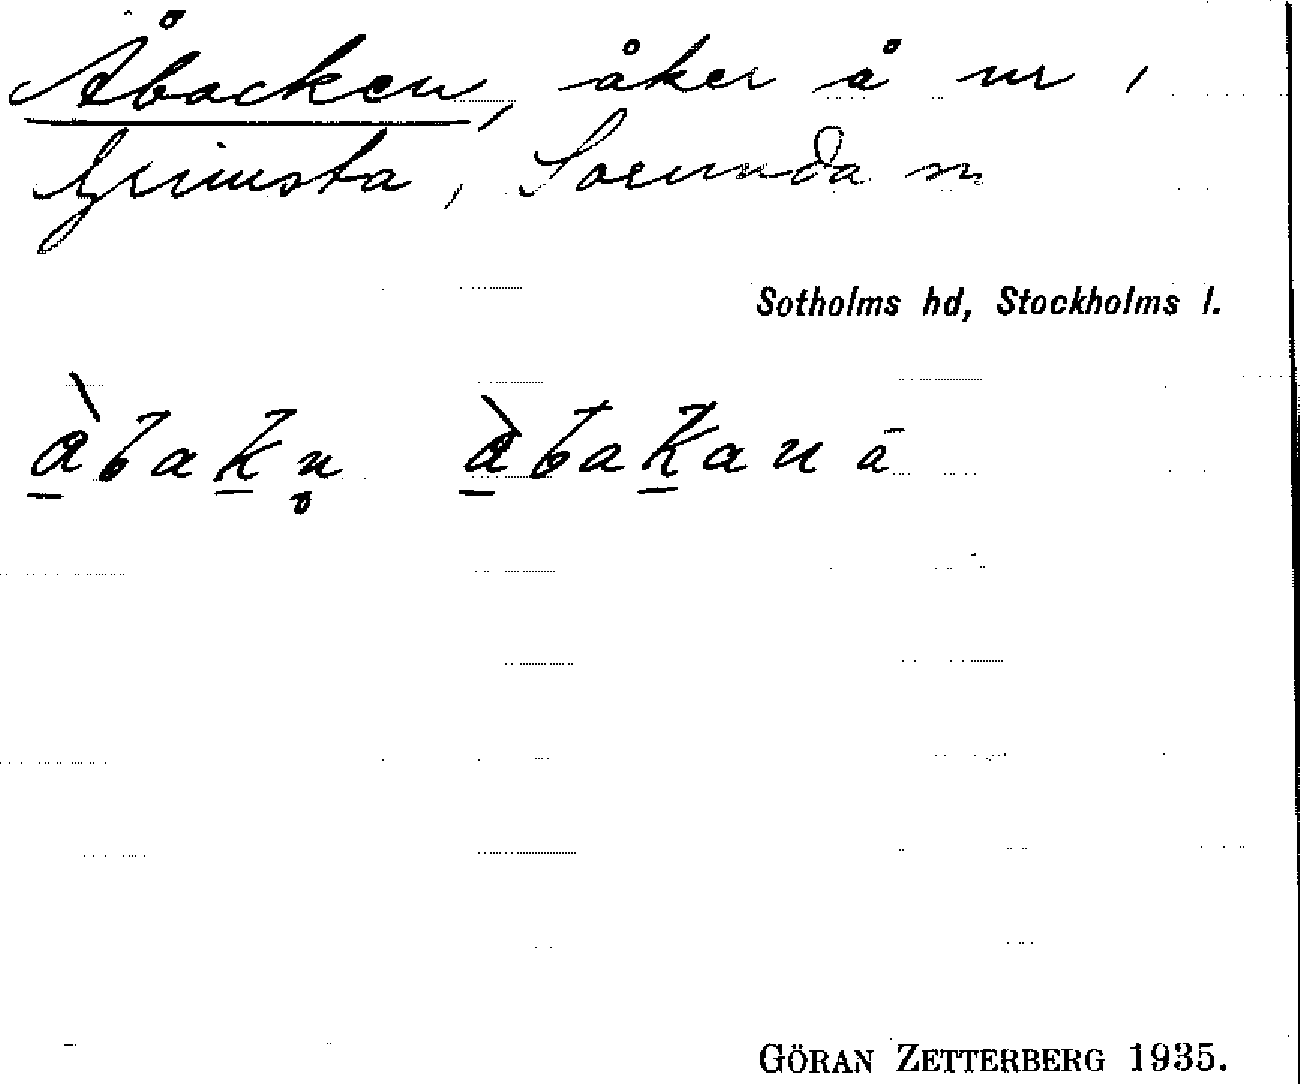 Åbacken, åker å nr 1
Grimsta, Sorunda sn
Sotholms hd, Stockholms l.
àbakn̥ àbakanā
GÖRAN ZETTERBERG 1935.